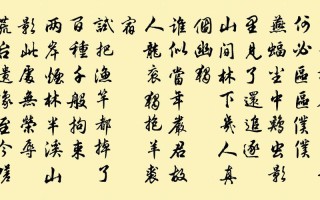 何必區區僕僕
燕蝠尘中影
里見了還追逐
山間林下幾人真
個幽獨
誰似當年嚴君故
人龍衮獨抱羊裘
宿
試把漁竿都掉了
百種千般拘束
兩岸煙林半溪山
影此處無榮辱
荒台遺像至今嗟